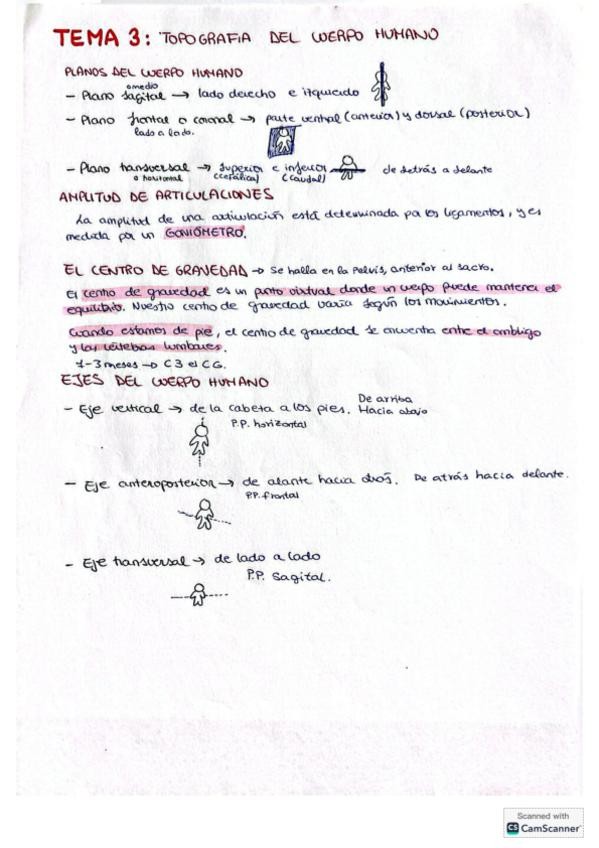 TEMA 3: TOPOGRAFIA DEL CUERPO HUMANO
PLANOS DEL CUERPO HUMANO
o medio
- Plano sagital → lado derecho e izquierdo
- Plano frontal o coronal → parte ventral (anterior) y dorsal (posterior)
lado a lado.
- Plano transversal → superior e inferior de detrás a delante
o horizontal (cefálica) (caudal)
AMPLITUD DE ARTICULACIONES
La amplitud de una articulación está determinada por los ligamentos, y es
medida por un GONIÓMETRO.
EL CENTRO DE GRAVEDAD → Se halla en la pelvis, anterior al sacro.
El centro de gravedad es un punto virtual donde un cuerpo puede mantener el
equilibrio. Nuestro centro de gravedad varía según los movimientos.
Cuando estamos de pie, el centro de gravedad se encuentra entre el ombligo
y las vértebras lumbares.
1-3 meses → C3 el CG.
EJES DEL CUERPO HUMANO
De arriba
- Eje vertical → de la cabeza a los pies. Hacia abajo
P.P. horizontal
- Eje anteroposterior → de alante hacia atrás. De atrás hacia delante.
P.P. frontal
- Eje transversal → de lado a lado
P.P. Sagital.
Scanned with
CS CamScanner